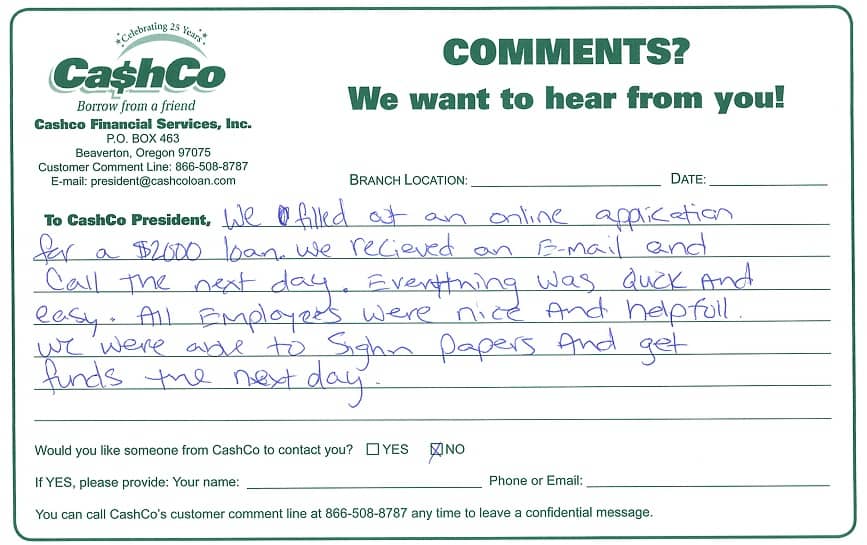 Celebrating 25 Years
Ca$hCo
Borrow from a friend
Cashco Financial Services, Inc.
P.O. BOX 463
Beaverton, Oregon 97075
Customer Comment Line: 866-508-8787
E-mail: president@cashcoloan.com
COMMENTS?
We want to hear from you!
BRANCH LOCATION: DATE:
To CashCo President, We filled out an online appication
for a $2600 loan. We recieved an E-mail and
Call the next day. Everything was quck And
easy. All Employees were nice And helpfull.
we were able to Sighn papers And get
funds the next day.
Would you like someone from CashCo to contact you? YES NO
If YES, please provide: Your name: Phone or Email:
You can call CashCo's customer comment line at 866-508-8787 any time to leave a confidential message.